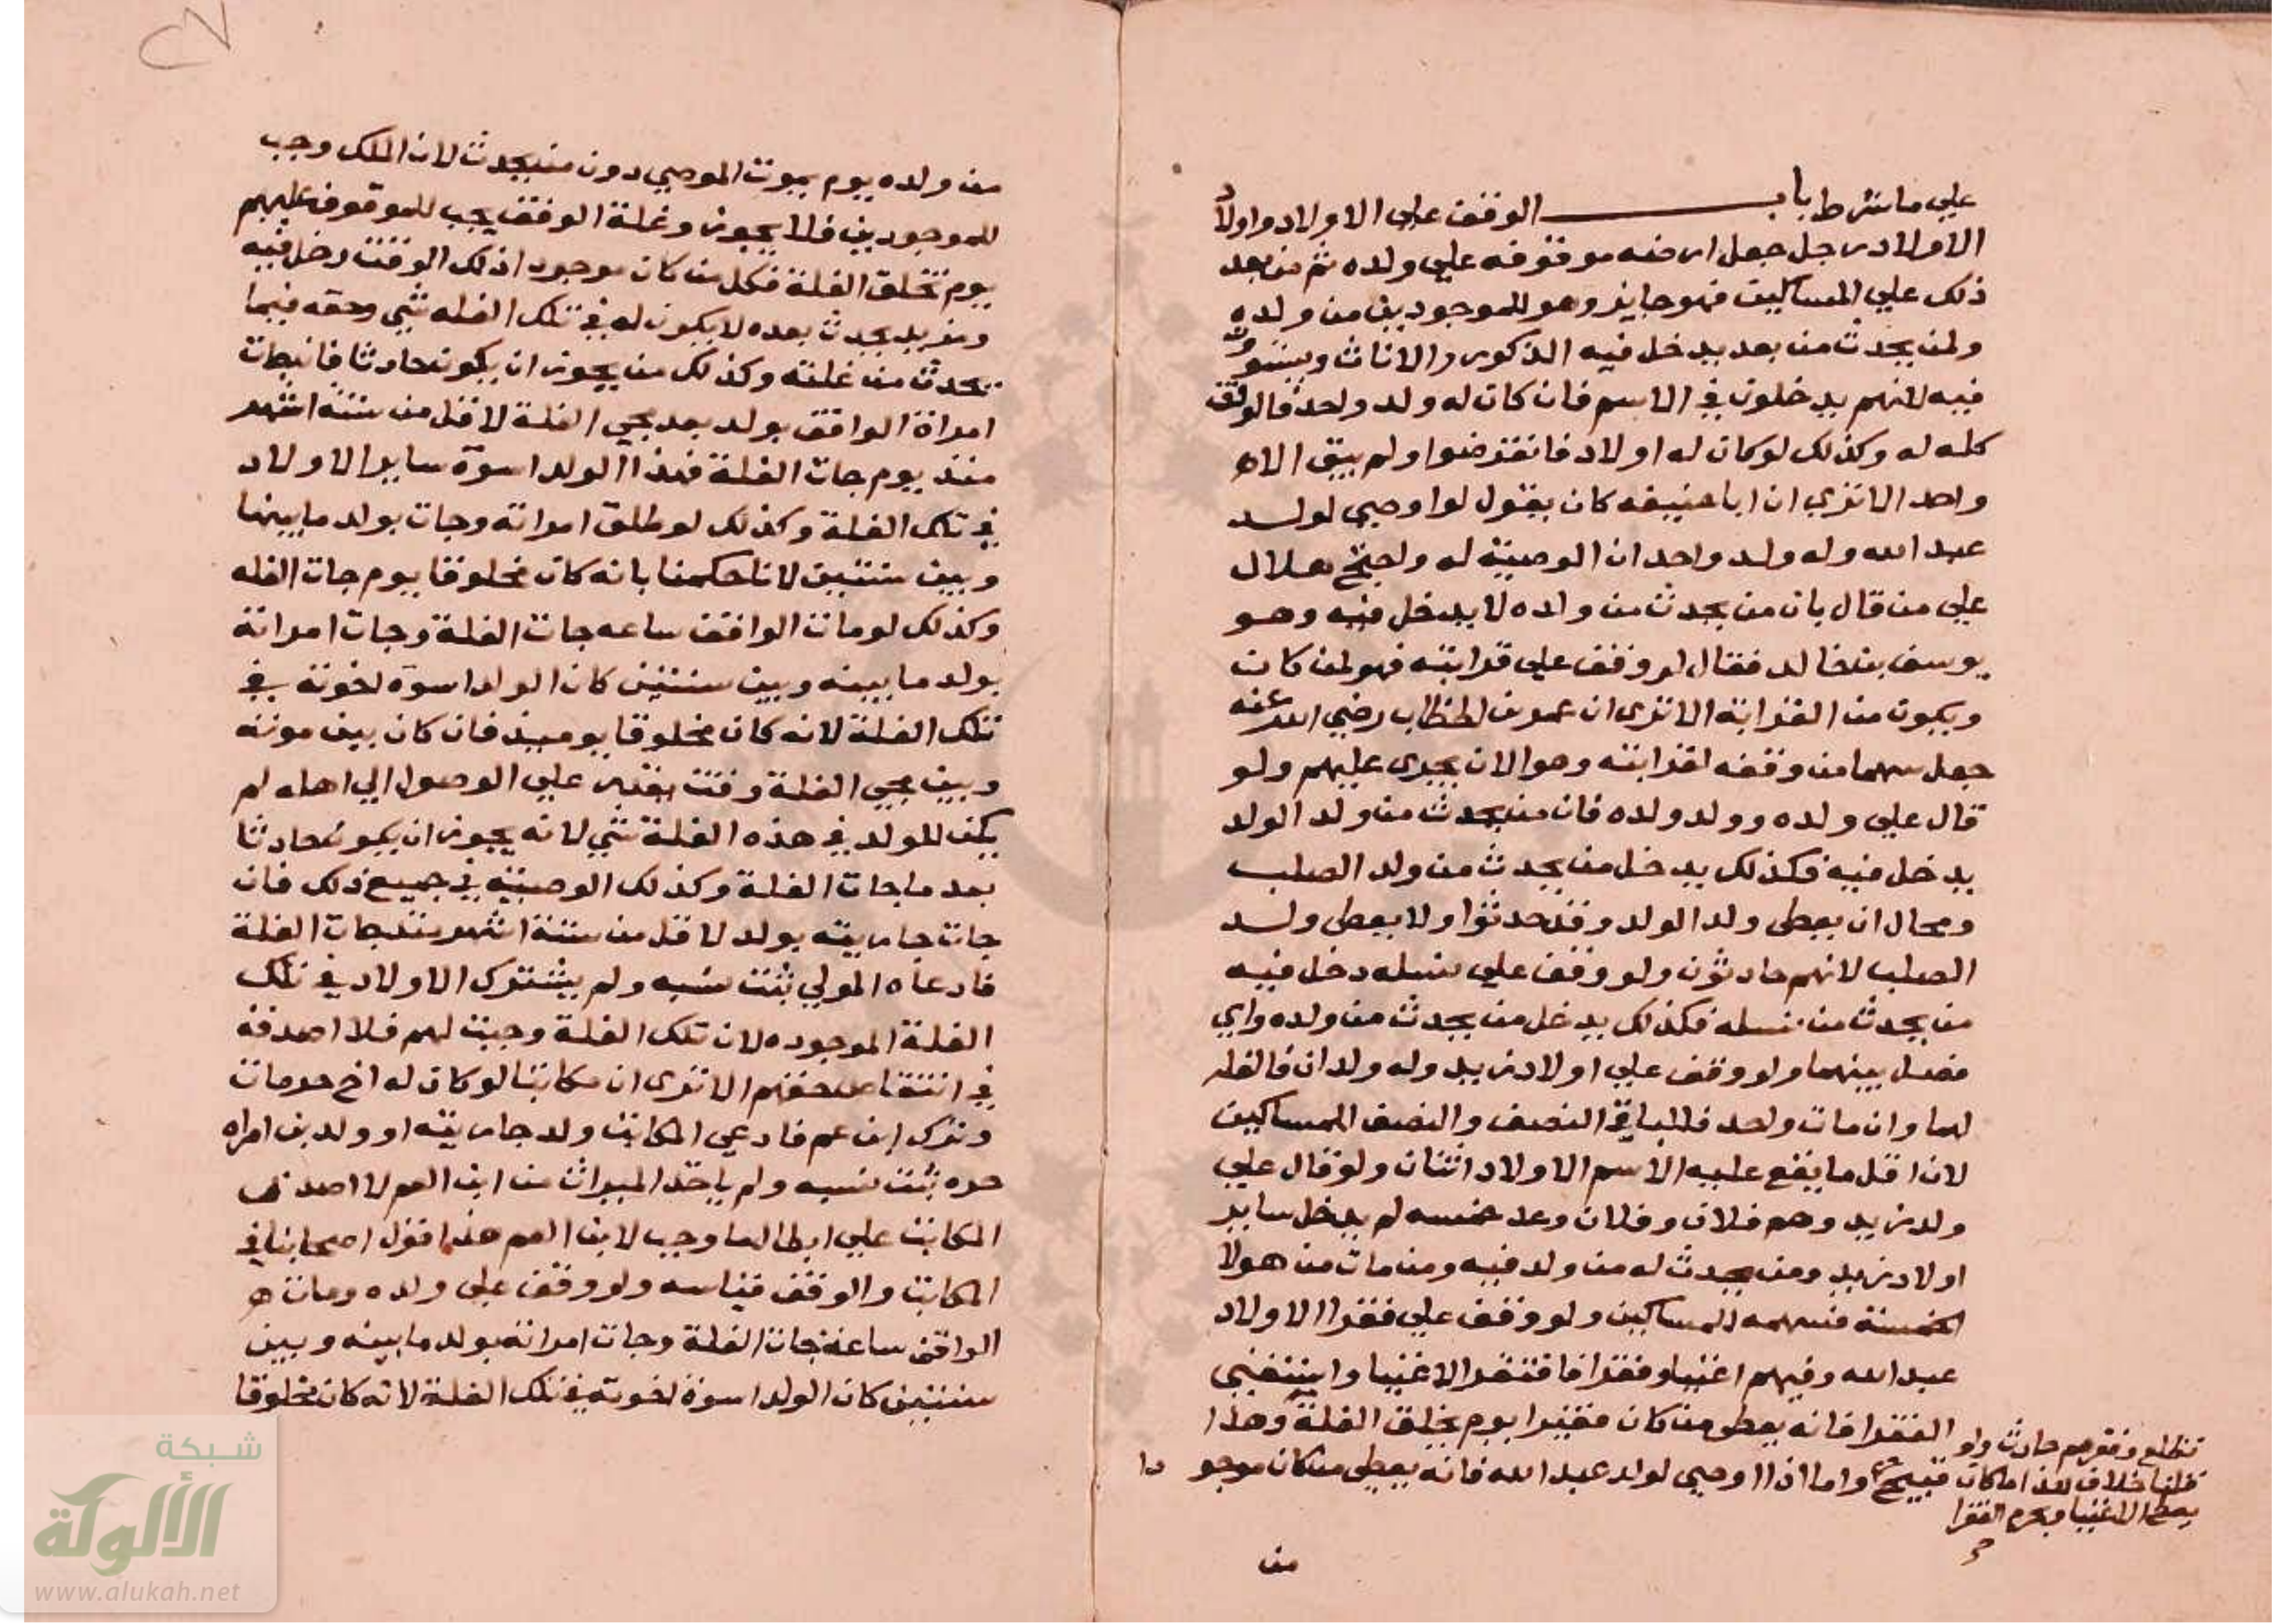 علي ما شرط باب الوقف علي الاولاد واولاد
الاولاد رجل جعل ارضه موقوفه علي ولده ثم من بعد
ذلك علي المساكين فهو جايز وهو للموجودين من ولده
ولمن يحدث من بعد يدخل فيه الذكور والاناث ويستوون
فيه لانهم يدخلون في الاسم فان كان له ولد واحد فالوقف
كله له وكذلك لو كان له اولاد فانقرضوا ولم يبق الا
واحد الا تري ان ابا حنيفه كان يقول لو اوصي لولد
عبد الله وله ولد واحد ان الوصية له واحتج هلال
علي من قال بان من يحدث من ولده لا يدخل فيه وهو
يوسف بن خالد فقال لو وقف علي قرابته فهو لمن كان
ويكون من القرابة الا تري ان عمر بن الخطاب رضي الله عنه
جعل سهما من وقفه لقرابته وهو الان يجري عليهم ولو
قال علي ولده وولد ولده فان من يحدث من ولد الولد
يدخل فيه فكذلك يدخل من يحدث من ولد الصلب
ومحال ان يعطي ولد الولد وقد حدثوا ولا يعطي ولد
الصلب لانهم حادثون ولو وقف علي نسله دخل فيه
من يحدث من نسله فكذلك يدخل من يحدث من ولده واي
فصل بينهما ولو وقف علي اولاد زيد وله ولدان فالغله
لهما وان مات واحد فللباقي النصف والنصف للمساكين
لان اقل ما يقع عليه الاسم الاولاد اثنان ولو قال علي
ولد زيد وهم فلان وفلان وعد خمسه لم يدخل ساير
اولاد زيد ومن يحدث له من ولد فيه ومن مات من هولا
الخمسة فسهمه للمساكين ولو وقف علي فقرا الاولاد
عبد الله وفيهم اغنيا وفقرا فافتقر الاغنيا واستغني
الفقرا فانه يعطي من كان فقيرا يوم يخلق الغلة وهذا
قبيح واما اذا اوصي لولد عبد الله فانه يعطي من كان موجودا
وفقرهم حادث ولو
قلنا خلاف هذا لكان
يعطي الاغنيا ويحرم الفقرا
من
٢٧
من ولده يوم يموت الموصي دون من يحدث لان الملك وجب
للموجودين فلا يجوز وغلة الوقف يجب للموقوف عليهم
يوم تخلق الغلة فكل من كان موجود اذ لك الوقت دخل فيه
ومن يحدث بعده لا يكون له في تلك الغله شي وحقه فيما
تحدث من غلته وكذلك من يجوز ان يكون حادثا فان جات
امراة الواقف بولد بعد مجي الغلة لاقل من ستة اشهر
منذ يوم جات الغلة فهذا الولد اسوة ساير الاولاد
في تلك الغلة وكذلك لو طلق امراته وجات بولد ما بينها
وبين سنتين لانا حكمنا بانه كان مخلوقا يوم جات الغله
وكذلك لو مات الواقف ساعه جات الغلة وجات امراته
بولد ما بينه وبين سنتين كان الولد اسوة لخوته في
تلك الغلة لانه كان مخلوقا يوميذ فان كان بين موته
وبين مجي الغلة وقت يقدر علي الوصول الي اهله لم
يكن للولد في هذه الغلة شي لانه يجوز ان يكون حادثا
بعد ما جات الغلة وكذلك الوصية في جميع ذلك فان
جات جاريته بولد لاقل من ستة اشهر منذ جات الغلة
فادعاه المولي ثبت نسبه ولم يشترك الاولاد في تلك
الغلة الموجوده لان تلك الغلة وجبت لهم فلا اصدقه
في انتقاص حقهم الا تري ان مكاتبا لو كان له اخ حر مات
وترك ابن عم فادعي المكاتب ولد جاريته او ولد بن امراه
حره ثبت نسبه ولم ياخذ الميراث من ابن العم لا اصدق
المكاتب علي ابطال ما وجب لابن العم هذا قول اصحابنا في
المكاتب والوقف قياسه ولو وقف علي ولده ومات
الواقف ساعة جات الغلة وجات امراته بولد ما بينه وبين
سنتين كان الولد اسوة لخوته في تلك الغلة لانه كان مخلوقا
شبكة
الألوكة
www.alukah.net